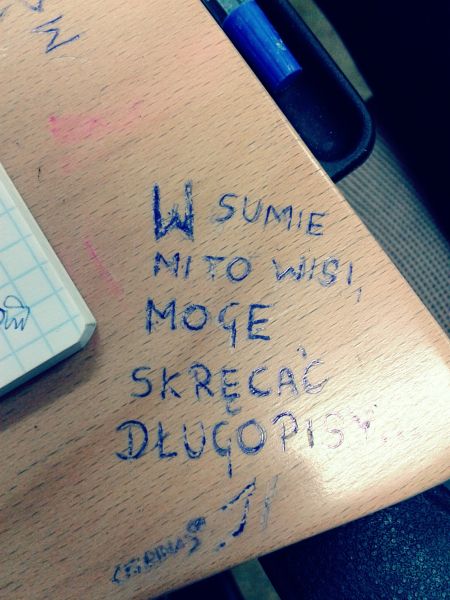 W SUMIE
MI TO WISI,
MOGE
SKRĘCAĆ
DŁUGOPISY...